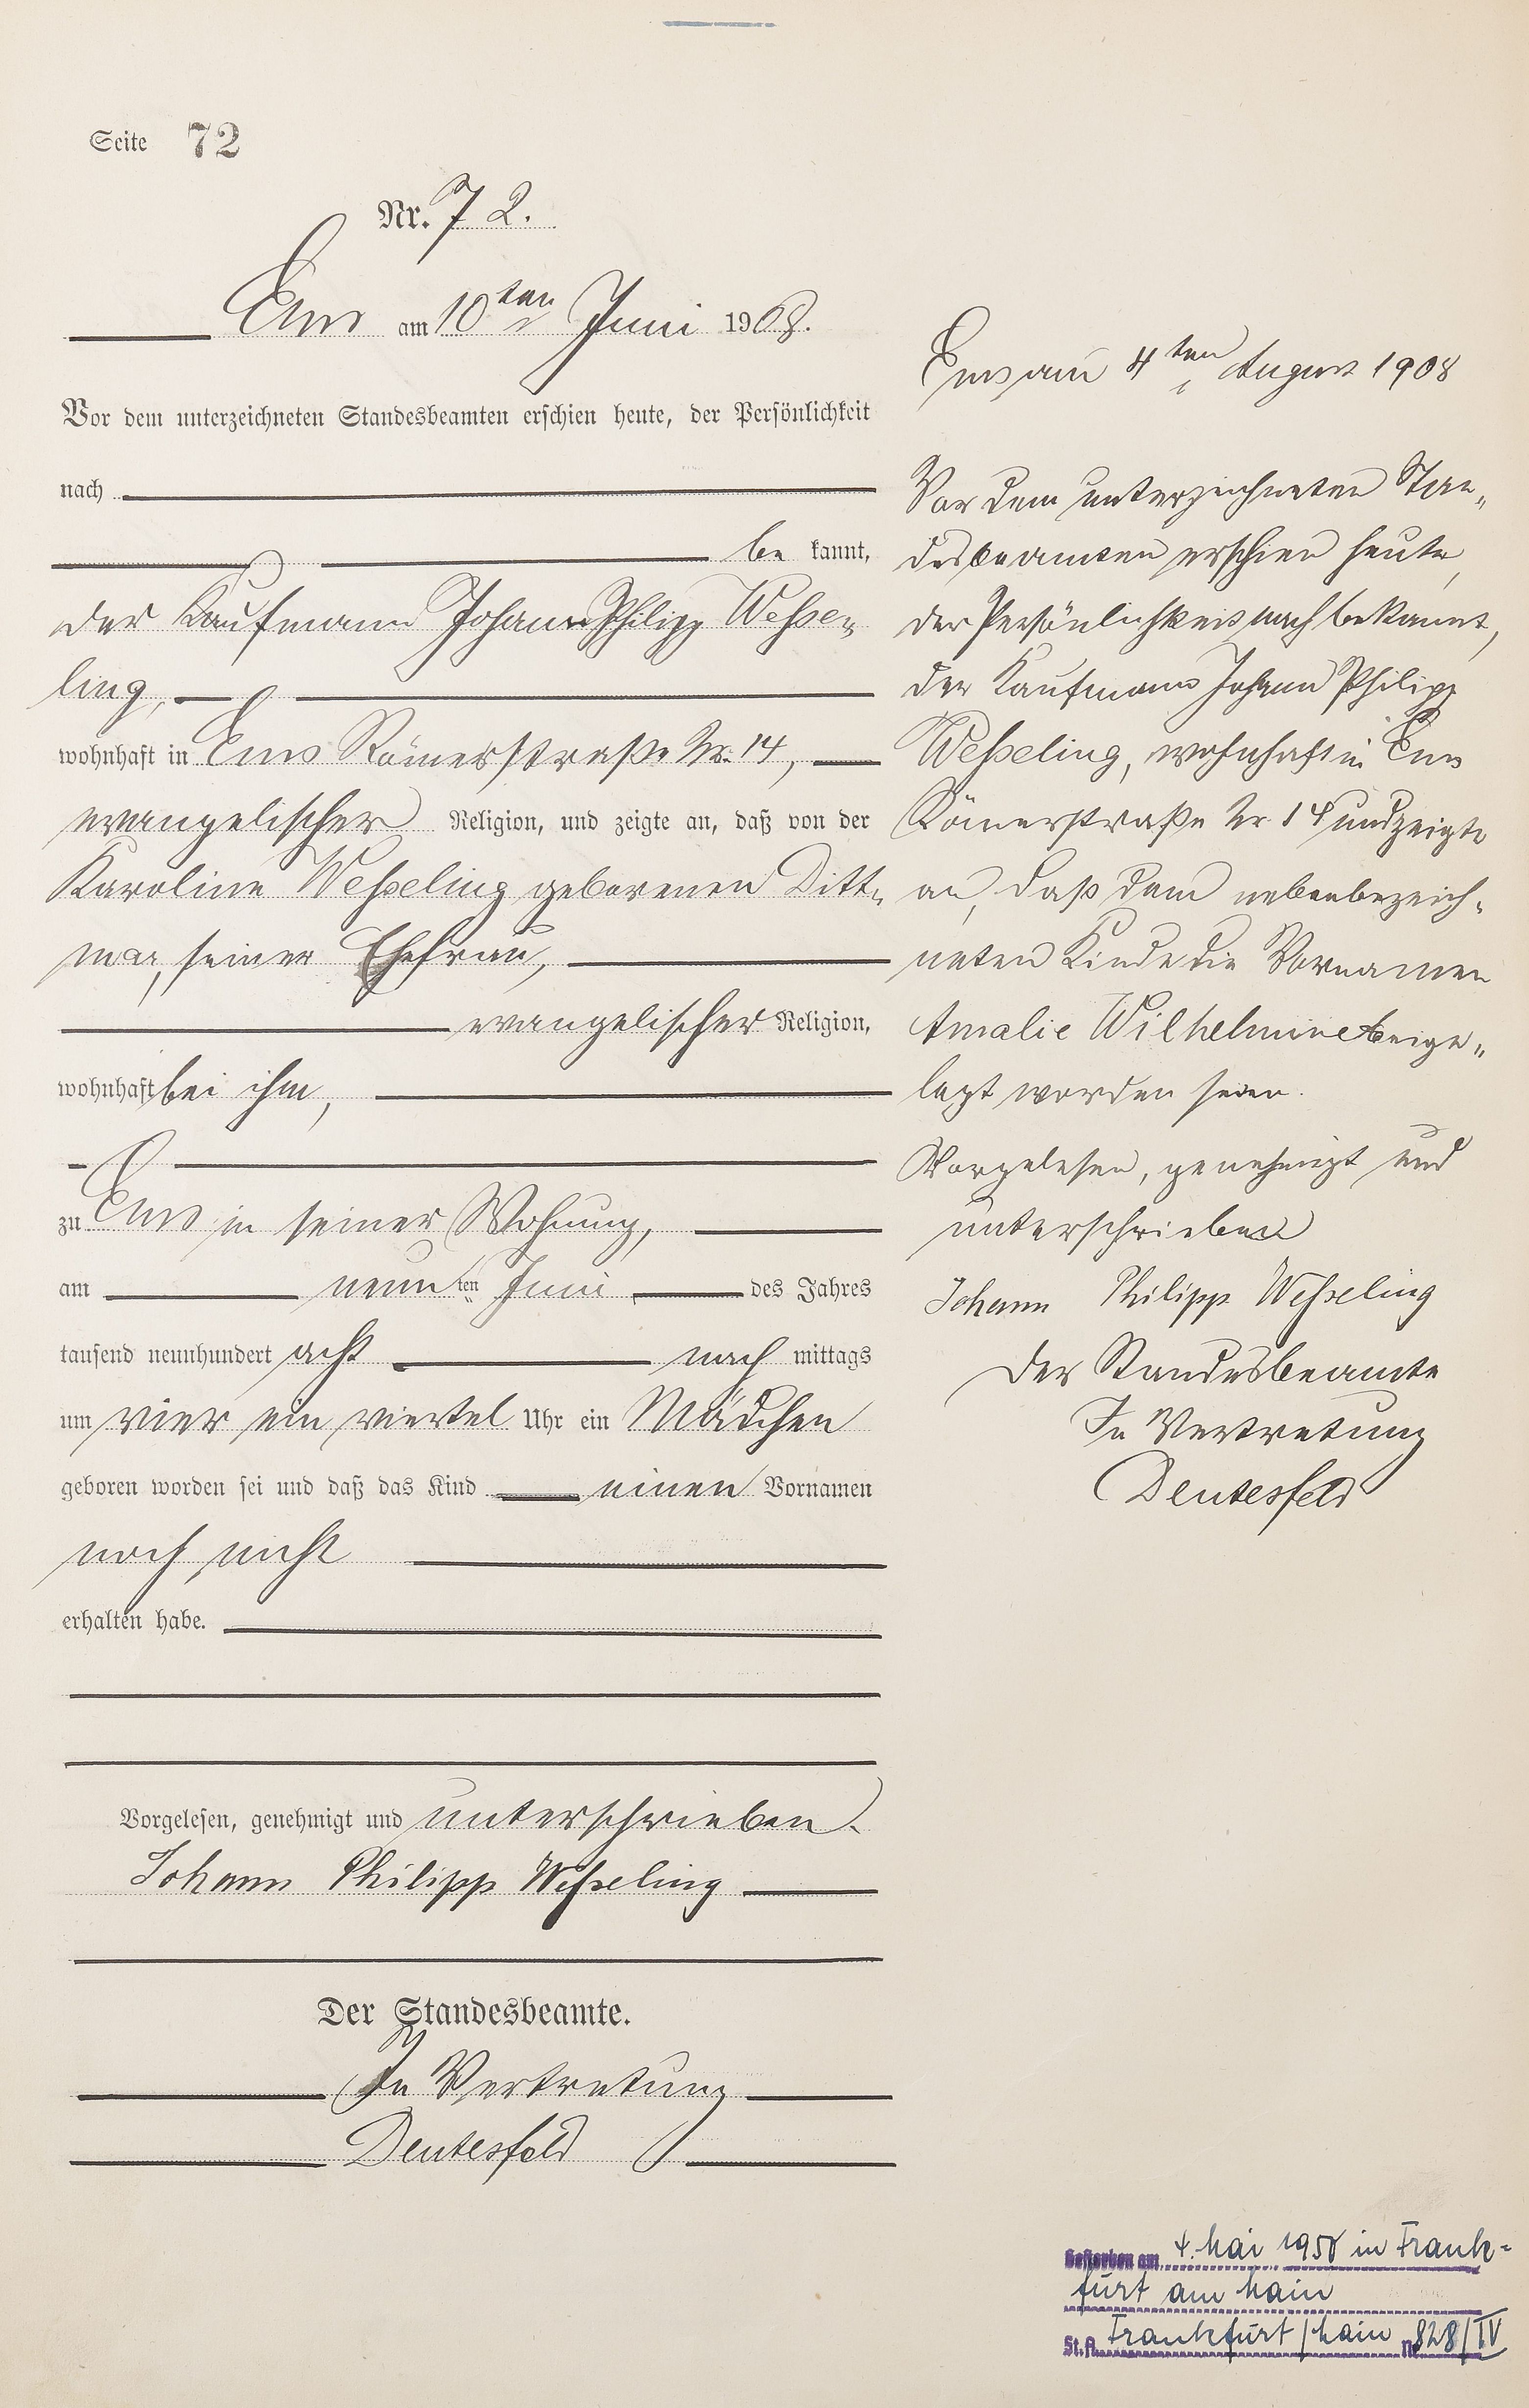 Seite 72
Nr. 72.
Ems am 10ten Juni 1908.
Vor dem unterzeichneten Standesbeamten erschien heute, der Persönlichkeit
nach
be kannt,
der Kaufmann Johann Philipp Wesse„
ling,
wohnhaft in Ems Römerstraße Nr. 14,
evangelischer Religion, und zeigte an, daß von der
Karoline Wesseling geborenen Ditt„
mar, seiner Ehefrau,
evangelischer Religion,
wohnhaft bei ihm,
zu Ems in seiner Wohnung,
am neunten Juni des Jahres
tausend neunhundert acht nach mittags
um vier ein viertel Uhr ein Mädchen
geboren worden sei und daß das Kind einen Vornamen
noch nicht
erhalten habe.
Vorgelesen, genehmigt und unterschrieben.
Johann Philipp Wesseling
Der Standesbeamte.
In Vertretung
Deutesfeld
Ems am 4ten August 1908
Vor dem unterzeichneten Stan„
desbeamten erschien heute,
der Persönlichkeit nach bekannt,
der Kaufmann Johann Philipp
Wesseling, wohnhaft in Ems
Römerstraße Nr. 14 und zeigte
an, daß dem nebenbezeich„
neten Kinde die Vornamen
Amalie Wilhelmine beige„
legt worden seien.
Vorgelesen, genehmigt und
unterschrieben
Johann Philipp Wesseling
Der Standesbeamte
In Vertretung
Deutesfeld
Gestorben am 4. Mai 1958 in Frank=
furt am Main
St.A. Frankfurt/Main Nr 828/IV